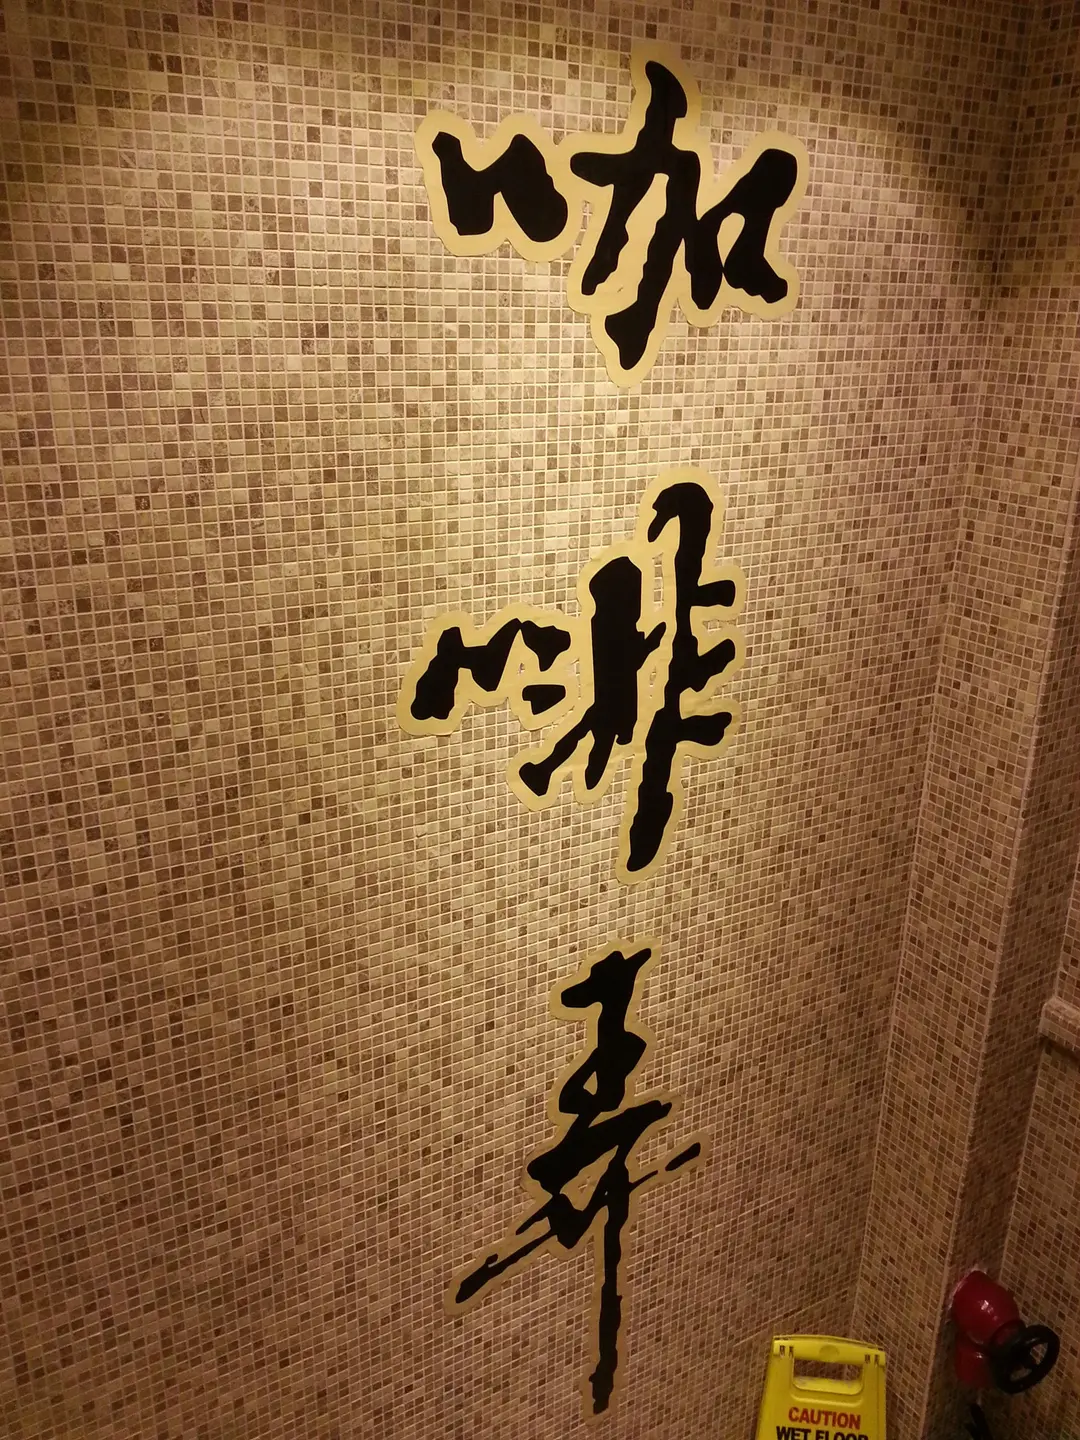 咖
啡
弄
CAUTION
WET FLOOR